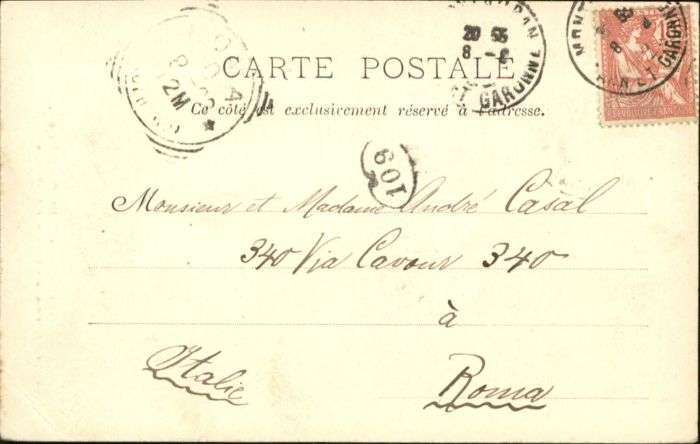 CARTE POSTALE
Ce côté est exclusivement réservé à l'adresse.
109
Monsieur et Madame André Casal
340 Via Cavour 340
à
Roma
Italie
ET GARONNE
TARN ET GARONNE
ROMA